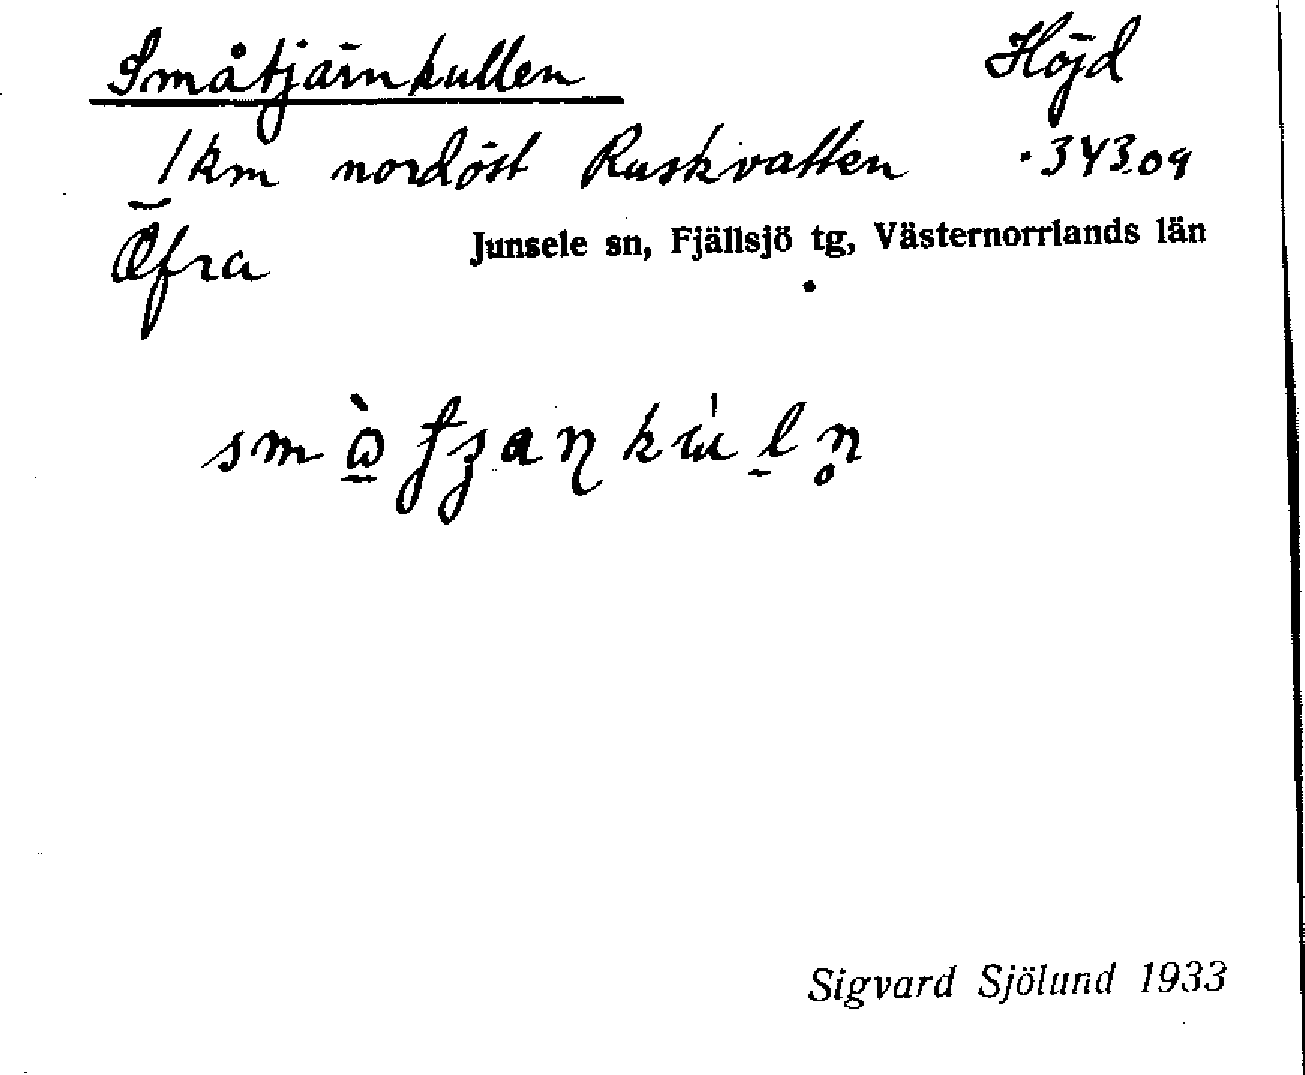 Småtjärnkullen Höjd
1 km nordöst Ruskvatten .343.09
Öfra Junsele sn, Fjällsjö tg, Västernorrlands län
Sigvard Sjölund 1933